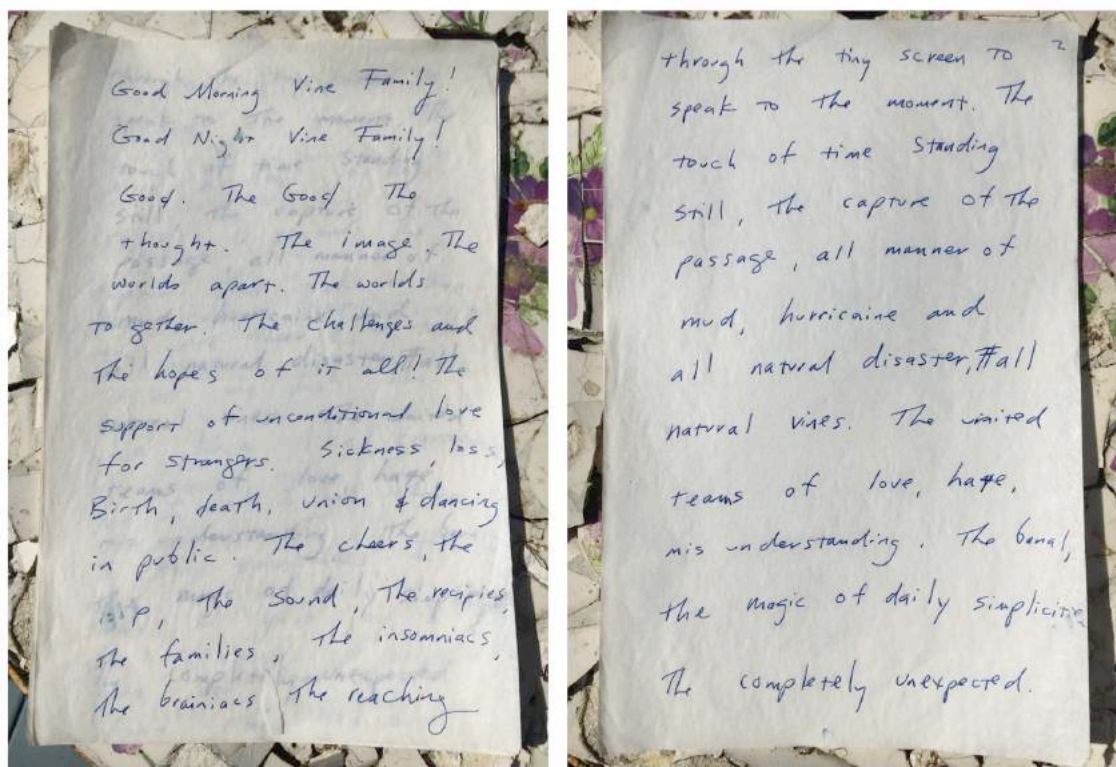 Good Morning Vine Family!
Good Night Vine Family!
Good. The Good The
thought. The image. The
worlds apart. The worlds
to gether. The challenges and
The hopes of it all! The
support of unconditional love
for strangers. Sickness, loss,
Birth, death, union & dancing
in public. The cheers, the
The Sound, The recipies,
The families, The insomniacs,
The brainiacs. The reaching
2
through the tiny screen to
speak to The moment. The
touch of time Standing
Still, The capture of The
passage, all manner of
mud, hurricaine and
all natural disaster, #all
natural vines. The united
teams of love, hate,
mis understanding. The banal,
the magic of daily
The completely unexpected.